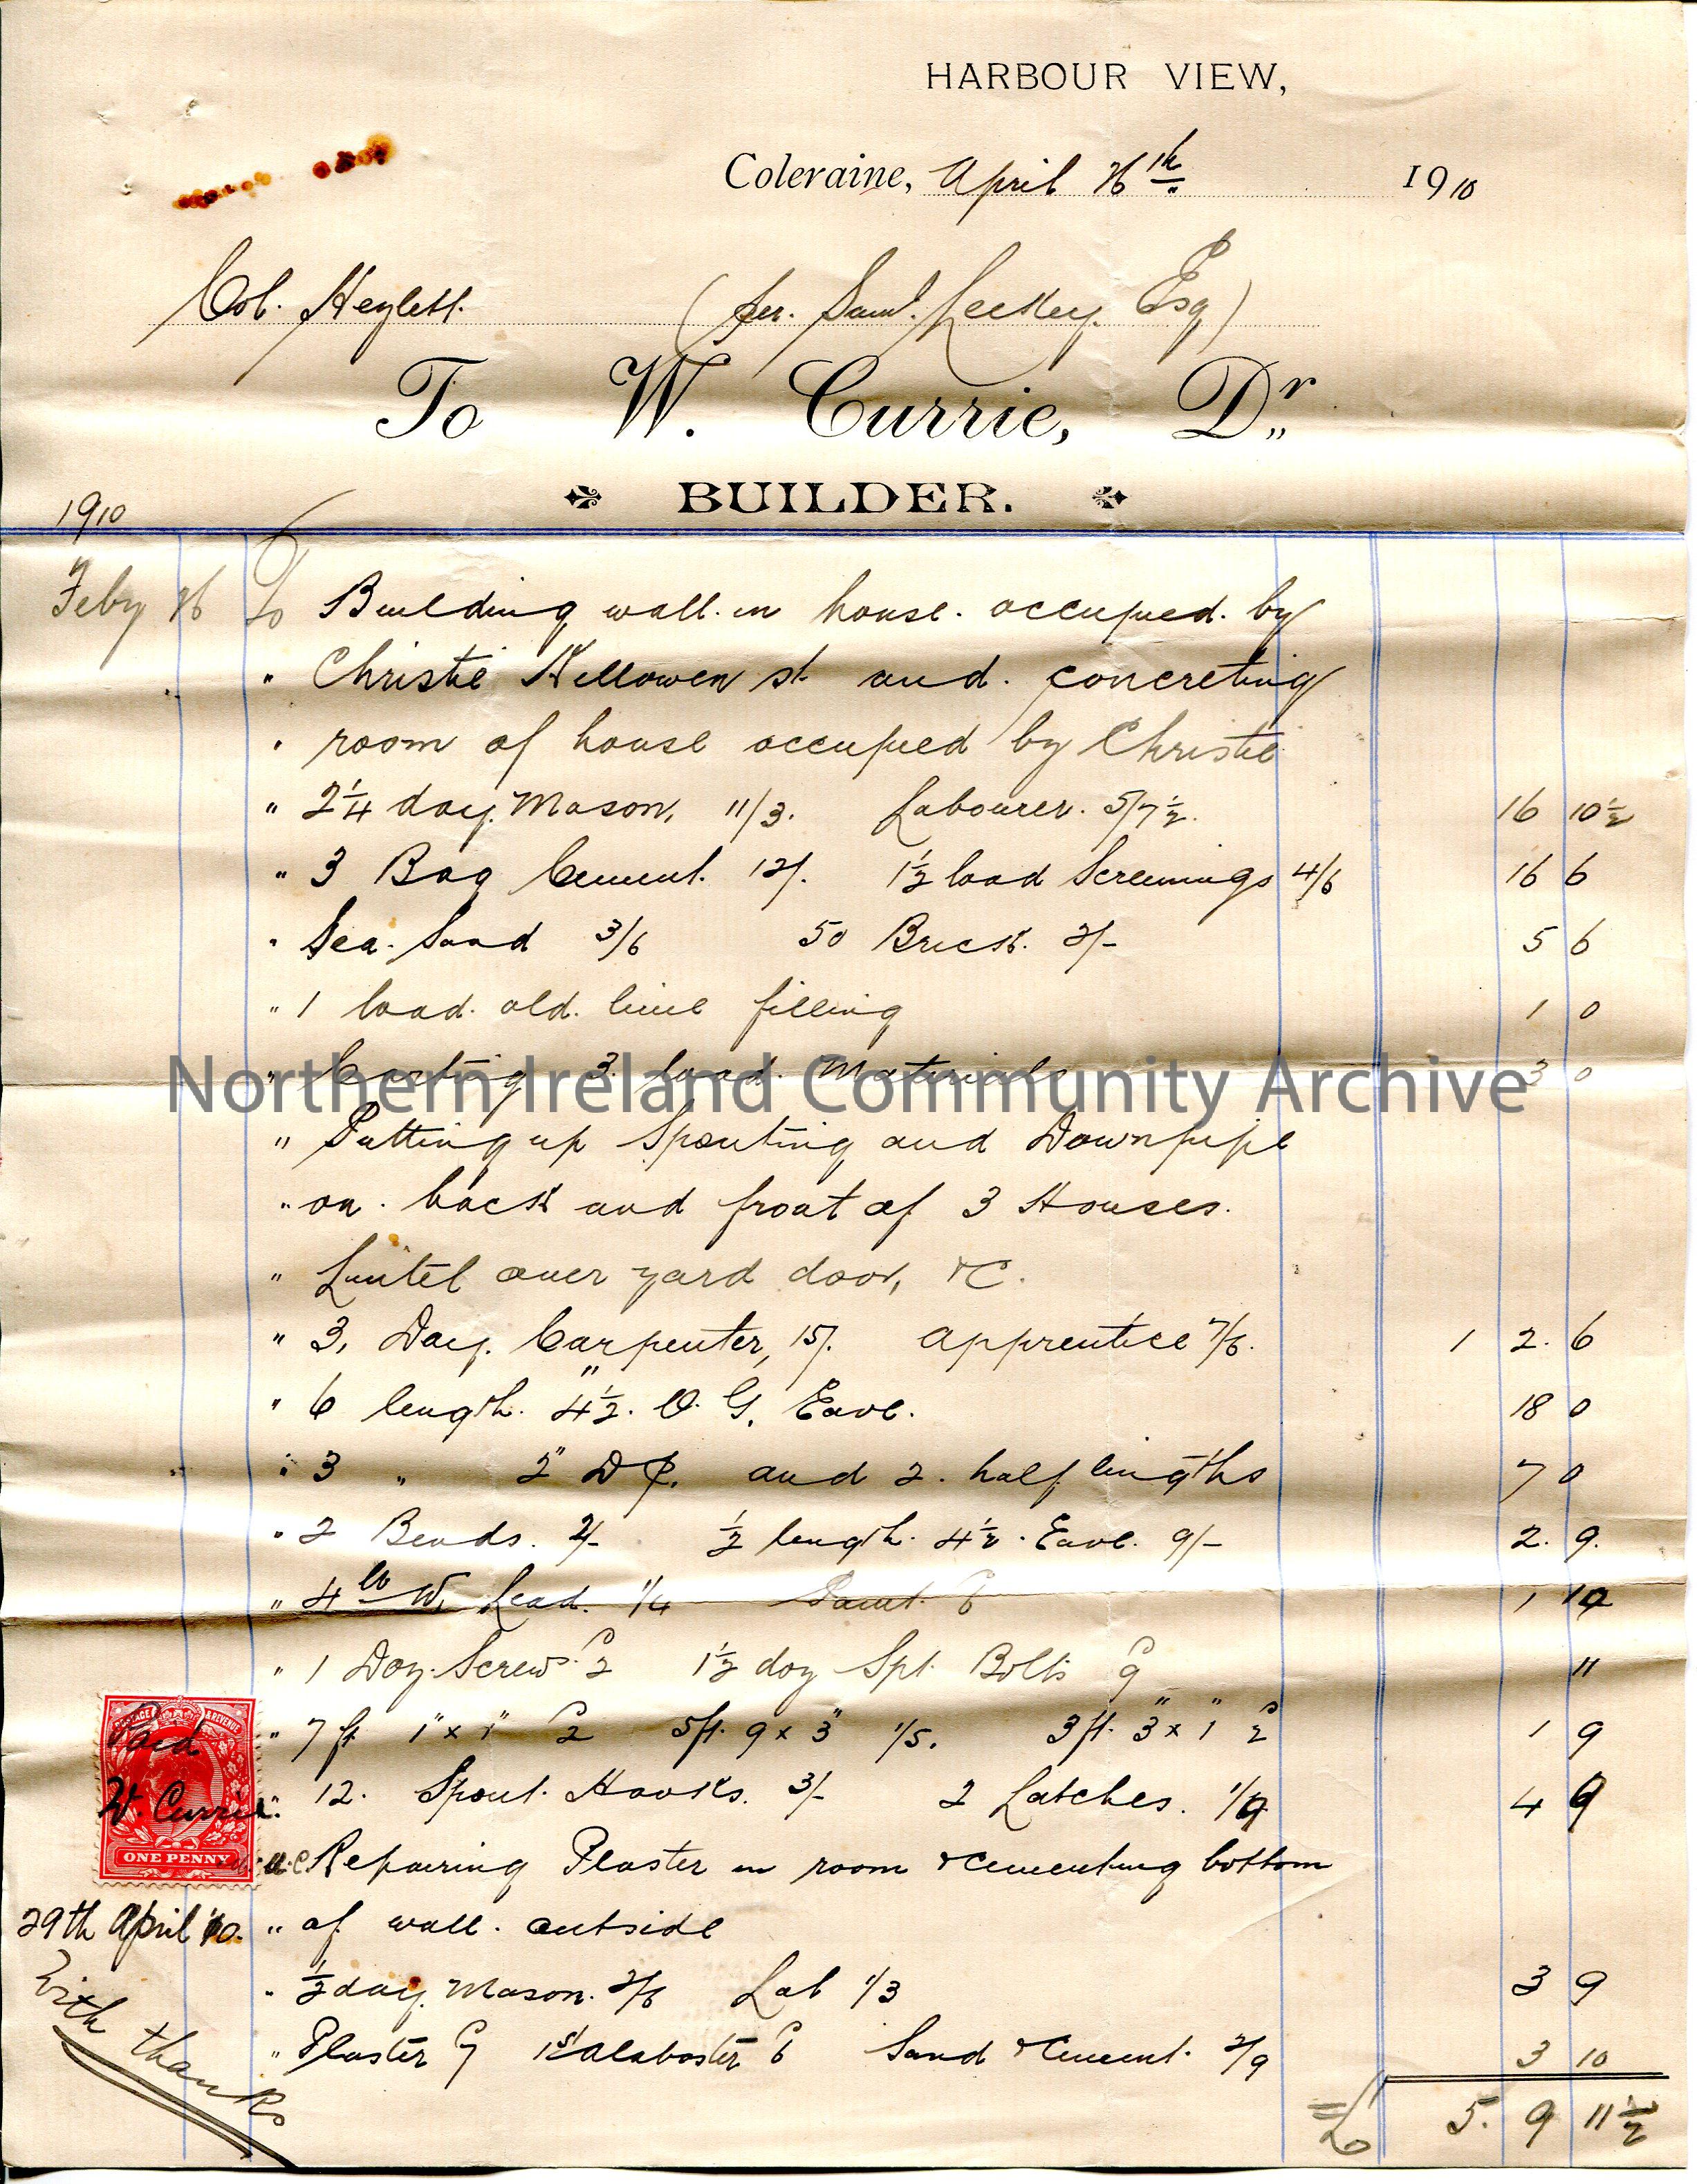 HARBOUR VIEW,
Coleraine, April 26th 1910
Col. Heyland. (per. Saml. Leckey. Esq)
To W. Currie, Dr.
BUILDER.
1910
Feby 26 To Building wall. in house. occupied. by
" Christie Killowen st. and. concreting
" room of house occupied by Christie
" 2 1/4 day. Mason, 11/3. Labourer. 5/7 1/2. 16 10 1/2
" 3 Bag Cement. 12/. 1 1/2 load Screenings 4/6 16 6
" Sea. Sand 3/6 50 Brick. 2/- 5 6
" 1 load. old. lime filling 1 0
" Carting 3 load. Materials 3 0
" Putting up Spouting and Downpipe
" on. back and front of 3 Houses.
" Lintel over yard door, &C.
" 3, Day. Carpenter, 15/. Apprentice 7/6. 1 2. 6
" 6 length. 4 1/2". O. G. Eave. 18 0
" 3 " 2" D P. and 2. half lengths 7 0
" 2 Bends. 2/- 1/2 length. 4 1/2. Eave. 9/- 2. 9.
" 4 lb W. Lead. 1/4 Paint. 6 1 10
" 1 Doz. Screws. 2 1 1/2 doz Spt. Bolts 9 11
" 7 ft 1" x 1" 2 5ft. 9 x 3" 1/5. 3ft. 3" x 1" 2 1 9
" 12. Spout. Hooks. 3/- 2 Latches. 1/9 4 9
Repairing Plaster in room & cementing bottom
" of wall. outside
" 1/2 day. Mason. 2/6 Lab 1/3 3 9
" Plaster 7 1st Alabaster 6 Sand & Cement. 2/9 3 10
£ 5. 9 11 1/2
Paid
W. Currie
POSTAGE & REVENUE
ONE PENNY
29th April '10.
With thanks
Northern Ireland Community Archive